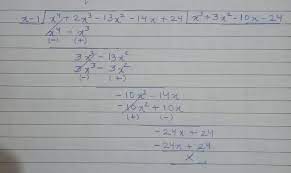 x-1 | x⁴ + 2x³ - 13x² - 14x + 24 | x³ + 3x² - 10x - 24
x⁴ - x³
(-) (+)
3x³ - 13x²
3x³ - 3x²
(-) (+)
-10x² - 14x
-10x² + 10x
(+) (-)
-24x + 24
-24x + 24
x